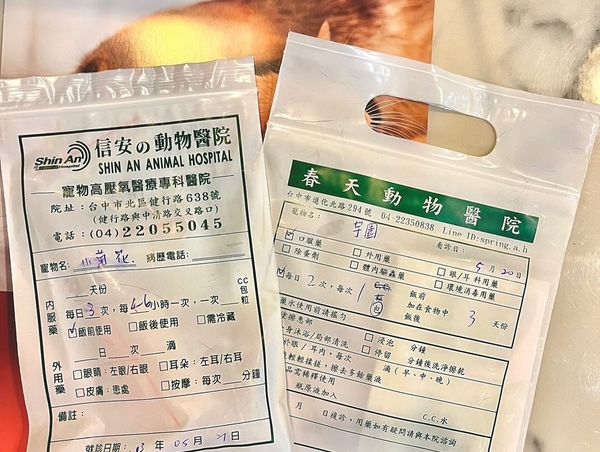 Shin An
Hospital
信安の動物醫院
SHIN AN ANIMAL HOSPITAL
寵物高壓氧醫療專科醫院
院址：台中市北區健行路638號
(健行路與中清路交叉路口)
電話：(04)22055045
寵物名：小菊花 病歷電話：
內服藥
天份
每日3次，每4-6小時一次，一次 CC 包 粒
飯前使用 飯後使用 需冷藏
外用藥
日 次 滴
眼睛：左眼/右眼 耳朵：左耳/右耳
皮膚：患處 按摩：每次 分鐘
備註：
就診日期：113年05月21日
春天動物醫院
台中市進化北路294號 04-22350838 Line ID:spring.a.h
寵物名：芋圓 看診日：5月20日
口服藥 外用藥 眼/耳科用藥
除蚤劑 體內驅蟲藥 環境消毒用藥
每日2次，每次1 包 飯前 加在食物中 飯後 3天份
藥水使用前請搖勻
塗擦患部 浸泡 分鐘
全身沐浴/局部清洗 停留 分鐘後洗淨擦乾
於眼/耳內，每次 滴(早、中、晚)
輕輕揉搓，擦去多餘藥液
品需稀釋使用
瓶原液加入 C.C.水
月 日複診，用藥如有疑問請與本院諮詢